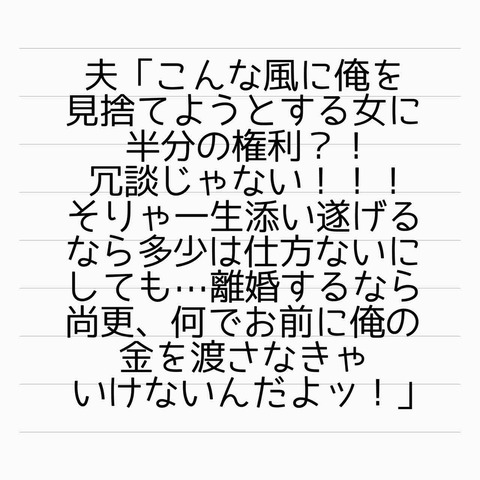 夫「こんな風に俺を
見捨てようとする女に
半分の権利？！
冗談じゃない！！！
そりゃ一生添い遂げる
なら多少は仕方ないに
しても…離婚するなら
尚更、何でお前に俺の
金を渡さなきゃ
いけないんだよッ！」